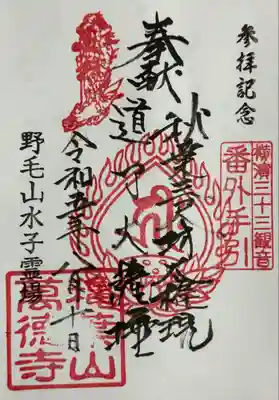 参拝記念
横濱三十三観音
番外手引
奉献
秋葉三尺坊大権現
道了大
令和五年八月十日
野毛山水子霊場
山
萬徳寺